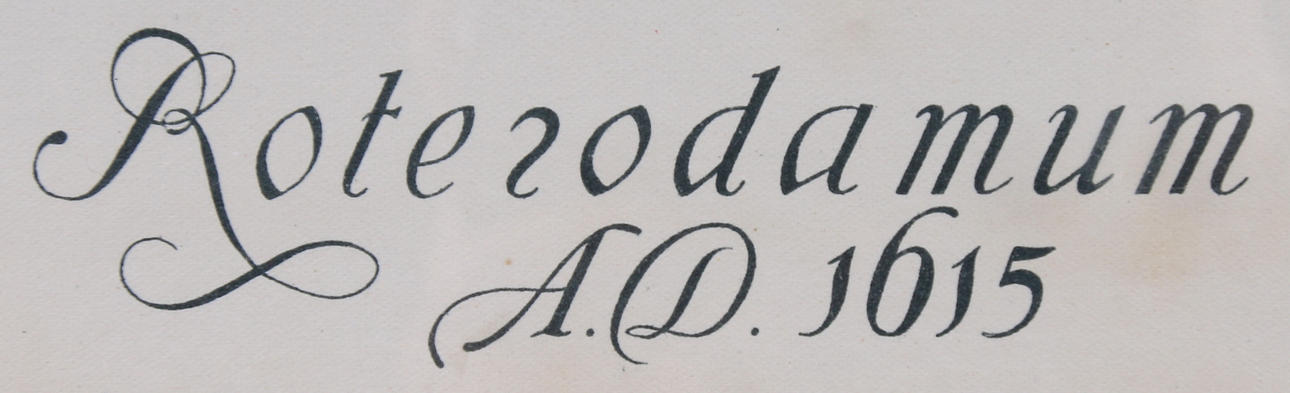 Roterodamum
A.D. 1615